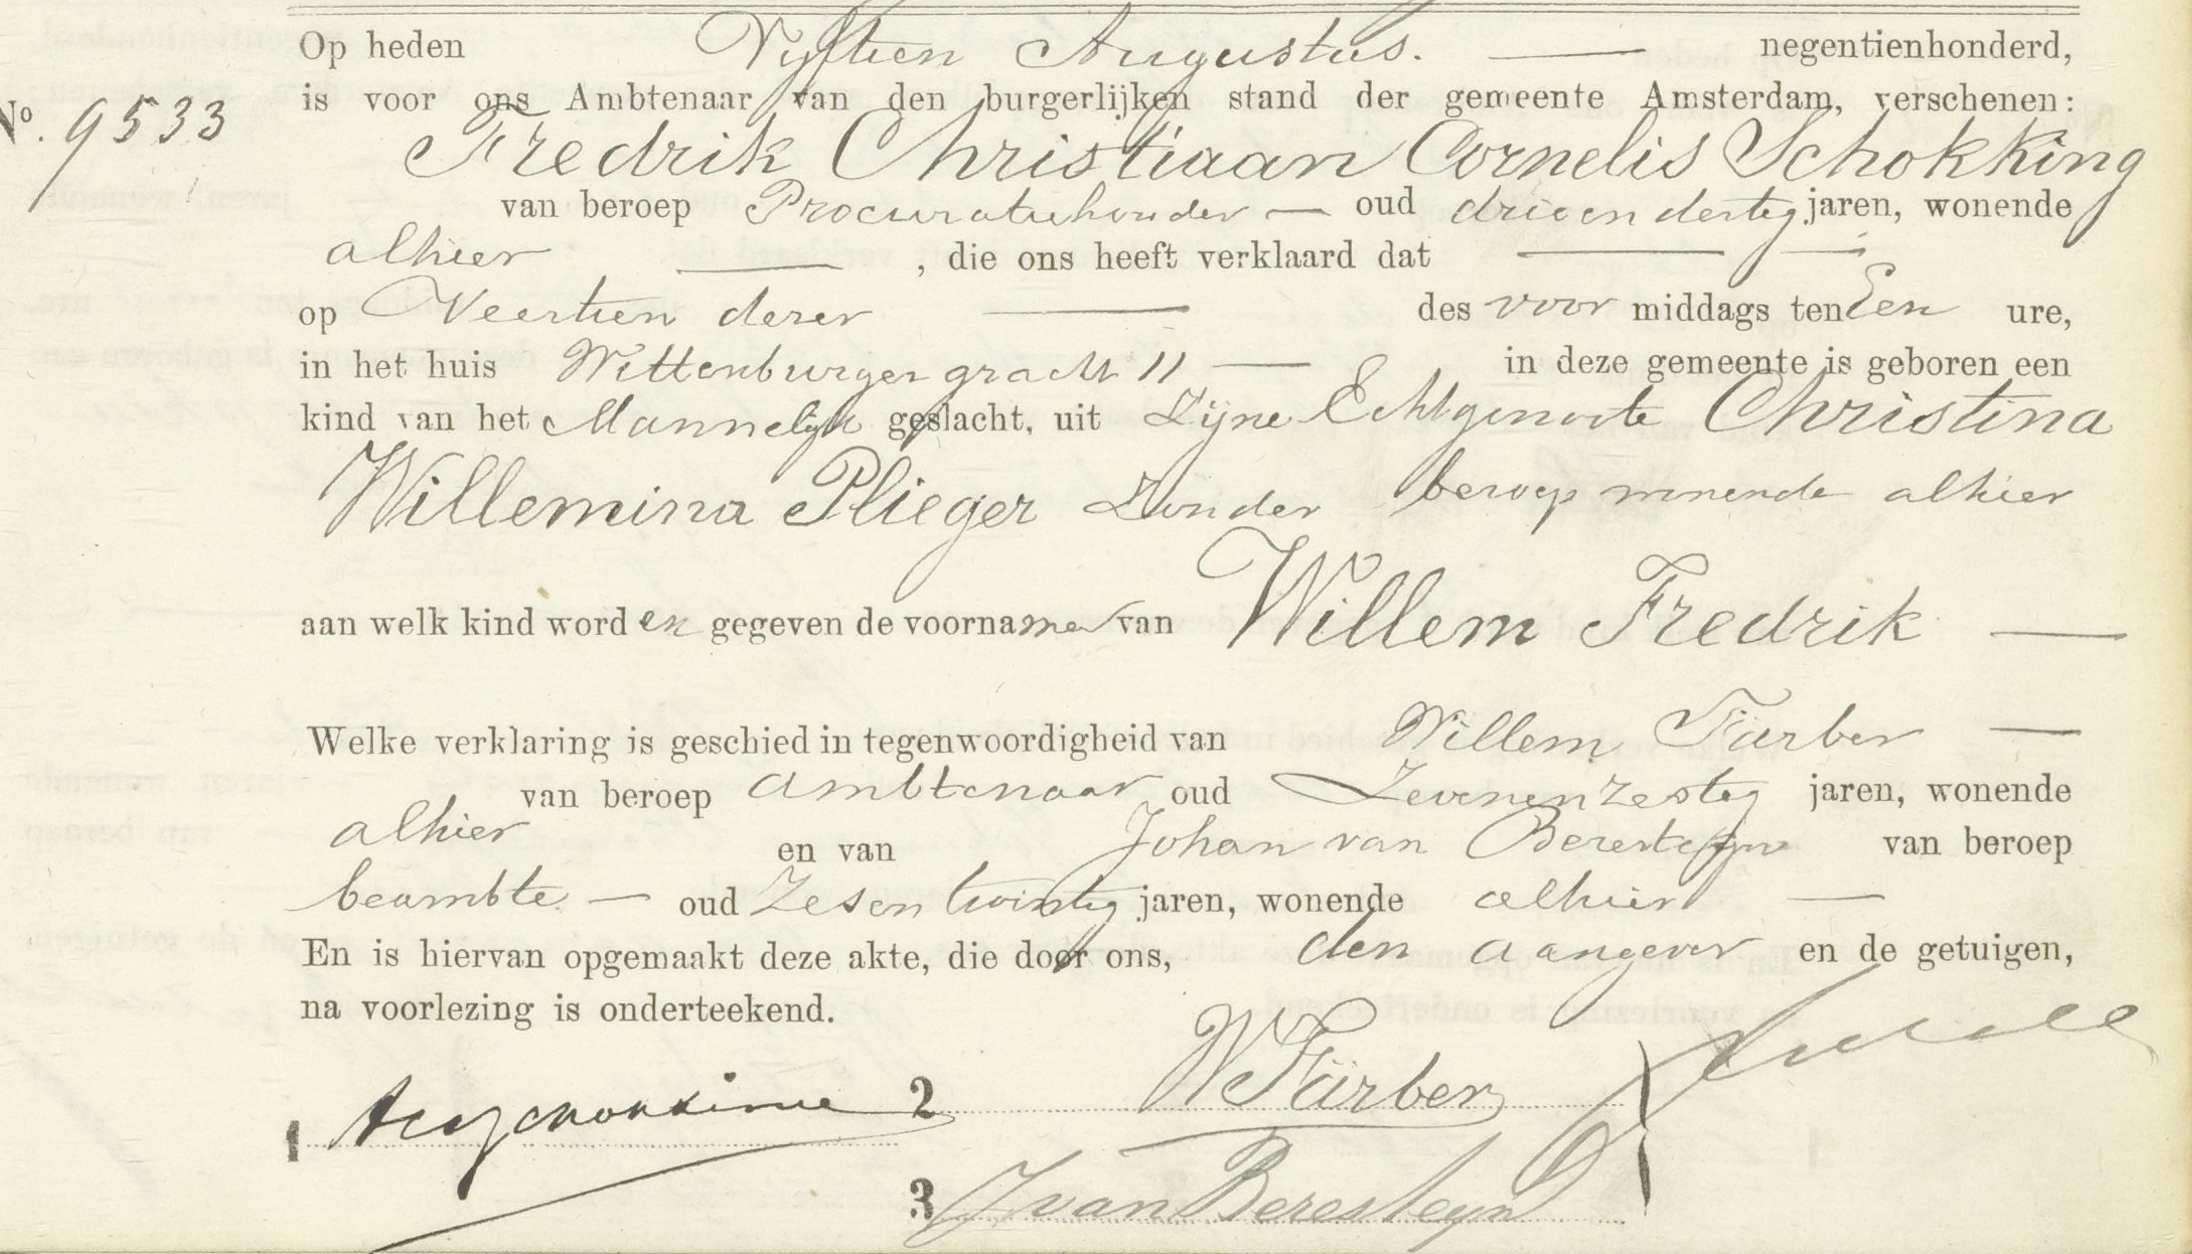 Op heden Vyftien Augustus. — negentienhonderd,
is voor ons Ambtenaar van den burgerlijken stand der gemeente Amsterdam, verschenen:
No. 9533
Fredrik Christiaan Cornelis Schokking
van beroep Procuratiehouder — oud drieendertig jaren, wonende
alhier — , die ons heeft verklaard dat —
op Veertien dezer — des voor middags ten Een ure,
in het huis Wittenburgergracht 11 — in deze gemeente is geboren een
kind van het Mannelijk geslacht, uit Zijne Echtgenoote Christina
Willemina Plieger Zonder beroep wonende alhier
aan welk kind worden gegeven de voornamen van Willem Fredrik —
Welke verklaring is geschied in tegenwoordigheid van Willem Färber —
van beroep ambtenaar oud Zevenenzestig jaren, wonende
alhier en van Johan van Beresteyn van beroep
beambte — oud Zesentwintig jaren, wonende alhier —
En is hiervan opgemaakt deze akte, die door ons, den aangever en de getuigen,
na voorlezing is onderteekend.
1 Schokking 2 W Färber
3 J van Beresteyn